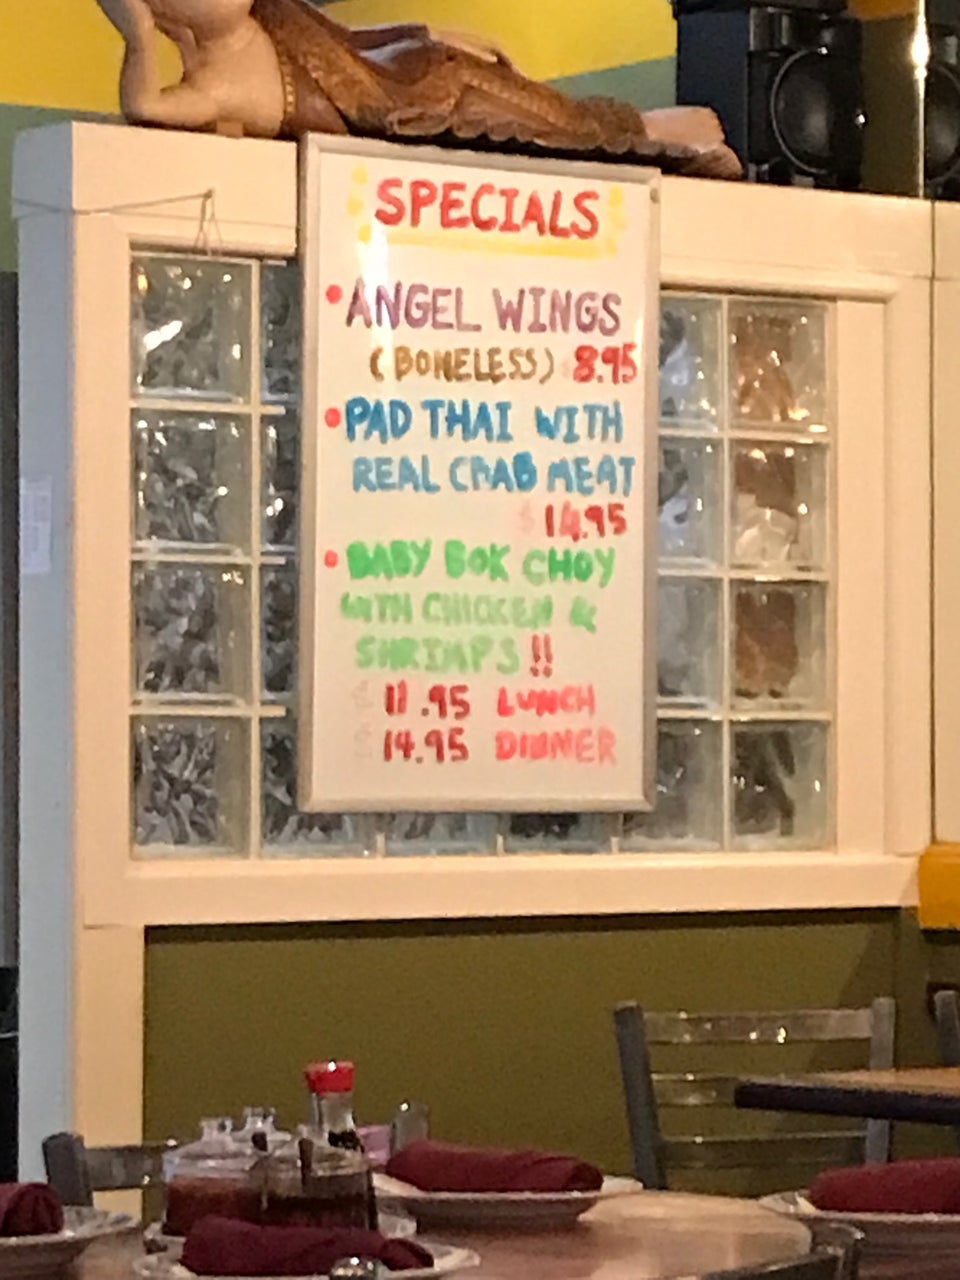 SPECIALS
• ANGEL WINGS
(BONELESS) $8.95
• PAD THAI WITH
REAL CRAB MEAT
$14.95
• BABY BOK CHOY
WITH CHICKEN &
SHRIMPS !!
$11.95 LUNCH
$14.95 DINNER